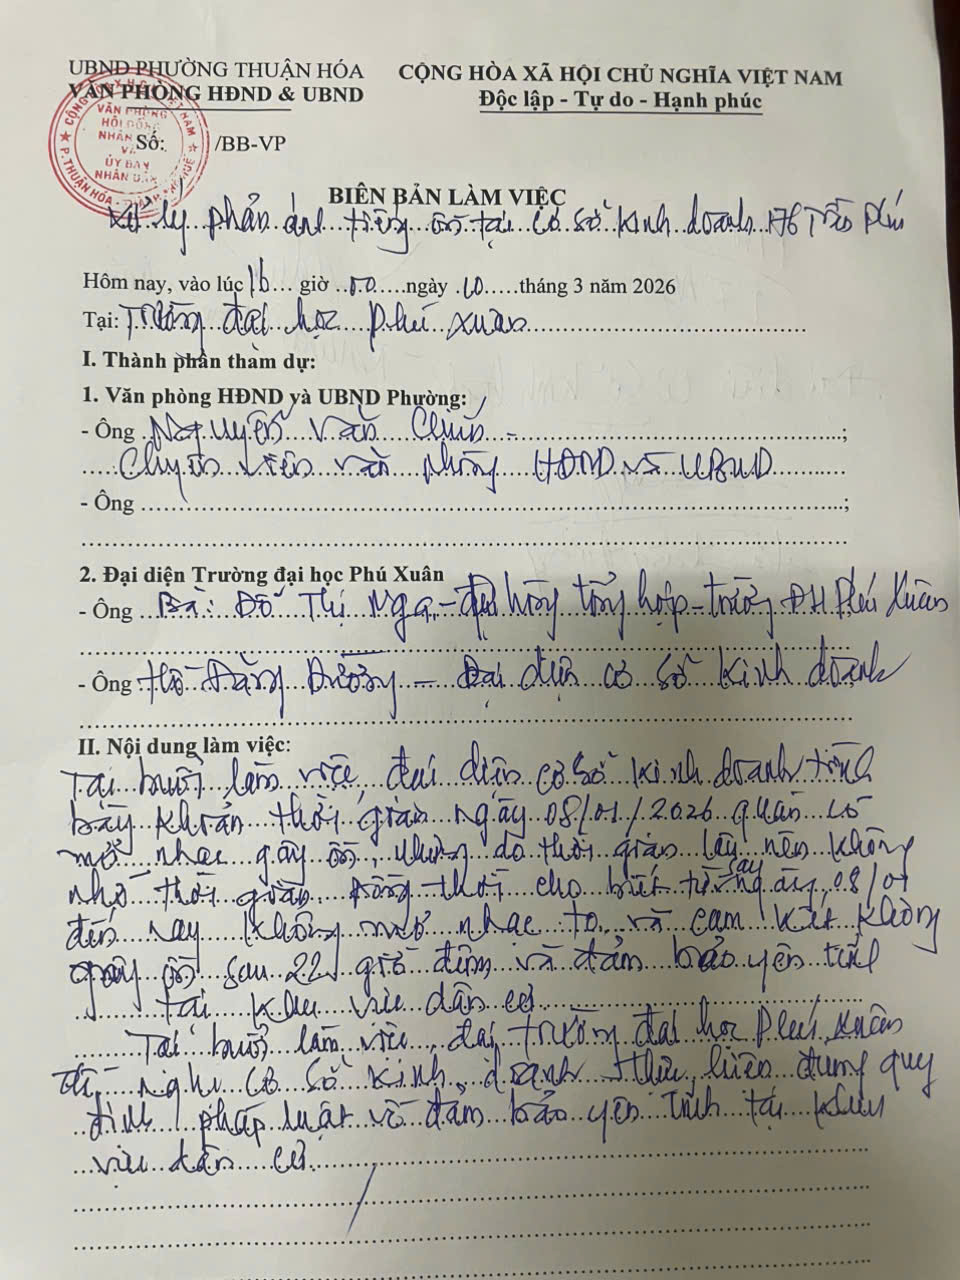 UBND PHƯỜNG THUẬN HÓA
VĂN PHÒNG HĐND & UBND
CỘNG HÒA XÃ HỘI CHỦ NGHĨA VIỆT NAM
Độc lập - Tự do - Hạnh phúc
VĂN PHÒNG
HỘI ĐỒNG
NHÂN
VÀ
ỦY BAN
NHÂN DÂN
Số: /BB-VP
BIÊN BẢN LÀM VIỆC
Xử lý phản ánh tiếng ồn tại cơ sở kinh doanh 176 Trần Phú
Hôm nay, vào lúc 16 giờ 00 ngày 10 tháng 3 năm 2026
Tại: Trường đại học Phú Xuân
I. Thành phần tham dự:
1. Văn phòng HĐND và UBND Phường:
- Ông Nguyễn Văn Chín -
Chuyên viên văn phòng HĐND và UBND
- Ông
2. Đại diện Trường đại học Phú Xuân
- Ông Bà: Đỗ Thị Nga - phòng tổng hợp - trường ĐH Phú Xuân
- Ông Hồ Đăng Dương - Đại diện cơ sở kinh doanh
II. Nội dung làm việc:
Tại buổi làm việc, đại diện cơ sở kinh doanh trình
bày khoản thời gian ngày 08/01/2026 quán có
mở nhạc gây ồn, nhưng do thời gian lâu nên không
nhớ thời gian, đồng thời cho biết từ sau ngày 08/01
đến nay không mở nhạc to và cam kết không
gây ồn sau 22 giờ đêm và đảm bảo yên tĩnh
tại khu vực dân cư
Tại buổi làm việc, đại trường đại học Phú Xuân
đề nghị cơ sở kinh doanh thực hiện đúng quy
định pháp luật về đảm bảo yên tĩnh tại khu
vực dân cư